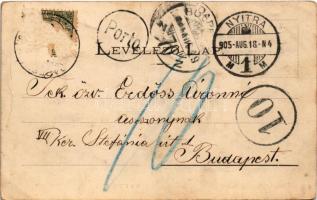 Porto
BUDAPEST
NYITRA
905 AUG. 18 N 4
M 1 M
LEVELEZŐ-LAP
10
Tek. özv. Erdőss Áronné
asszonynak
VII Ker. Stefánia út 1.
Budapest.
10